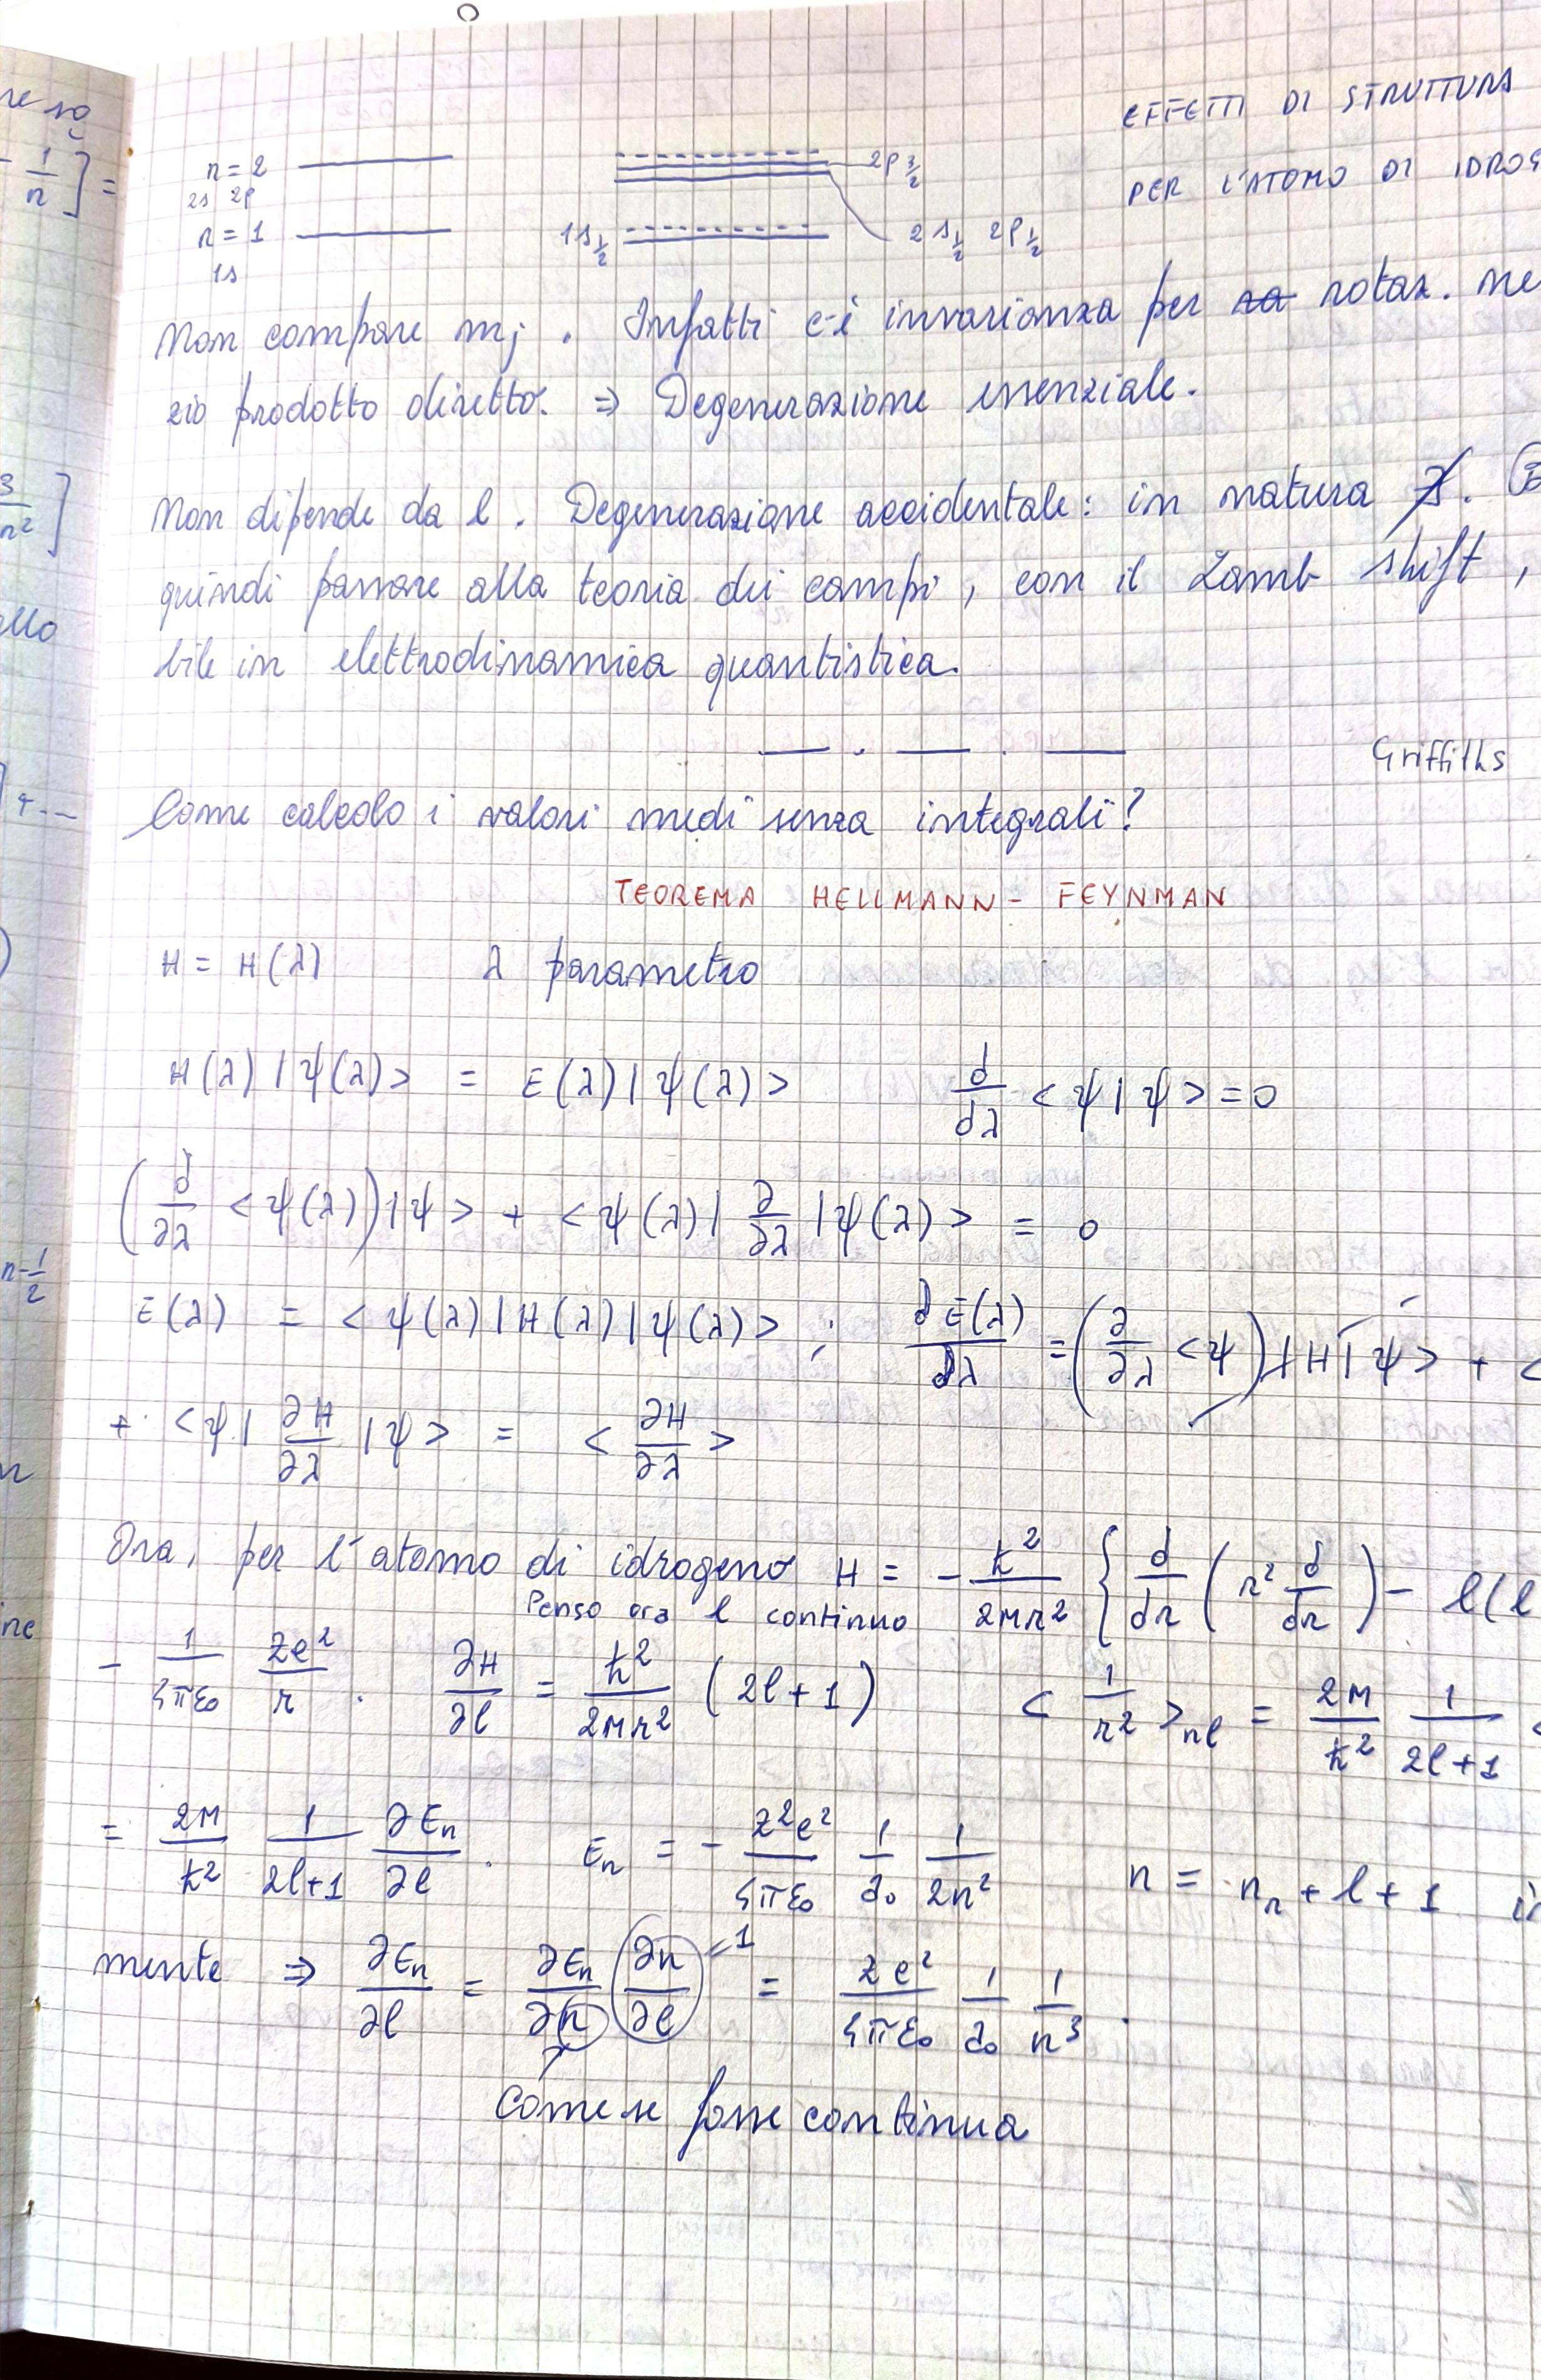 EFFETTI DI STRUTTURA
PER L'ATOMO DI IDROG
n = 2
2s 2p
n = 1
1s
2p 3/2
1s 1/2
2s 1/2 2p 1/2
Non compare mj . Infatti c'è invarianza per rotaz. ne
zio prodotto diretto. ⇒ Degenerazione essenziale.
Non dipende da l . Degenerazione accidentale : in natura ∄.
quindi passare alla teoria dei campi , con il Lamb shift ,
bile in elettrodinamica quantistica.
Griffiths
Come calcolo i valori medi senza integrali ?
TEOREMA HELLMANN - FEYNMAN
H = H(λ) λ parametro
H(λ) |ψ(λ)> = E(λ) |ψ(λ)> d/dλ <ψ|ψ> = 0
(∂/∂λ <ψ(λ)) |ψ> + <ψ(λ)| ∂/∂λ |ψ(λ)> = 0
E(λ) = <ψ(λ)|H(λ)|ψ(λ)> ; dE(λ)/dλ = (∂/∂λ <ψ) |H|ψ> + <
+ <ψ| ∂H/∂λ |ψ> = <∂H/∂λ>
Ora, per l'atomo di idrogeno H = - ħ²/2Mr² { d/dr ( r² d/dr ) - l(l
Penso ora l continuo
- 1/4πε₀ Ze²/r . ∂H/∂l = ħ²/2Mr² (2l+1) <1/r²>nl = 2M/ħ² 1/2l+1 <
= 2M/ħ² 1/2l+1 ∂En/∂l . En = - Z²e²/4πε₀ 1/a₀ 1/2n² n = nr + l + 1
mente ⇒ ∂En/∂l = ∂En/∂n ∂n/∂l = 1 = Ze²/4πε₀ 1/a₀ 1/n³ .
Come se fosse continua